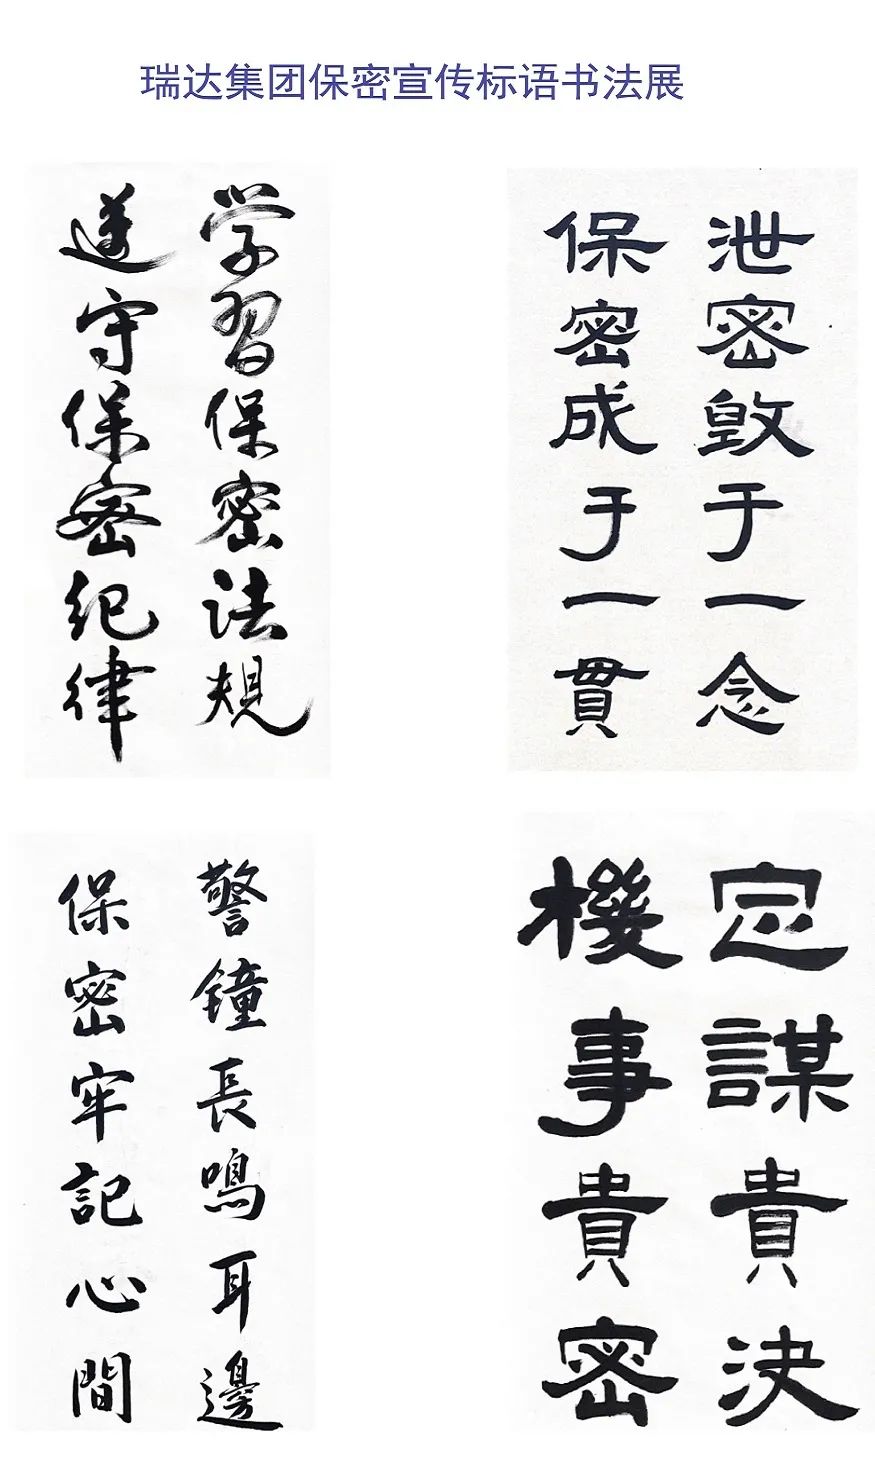 瑞达集团保密宣传标语书法展
学習保密法规
遵守保密纪律
泄密毁于一念
保密成于一貫
警鐘長鳴耳邊
保密牢記心間
定謀貴決
機事貴密